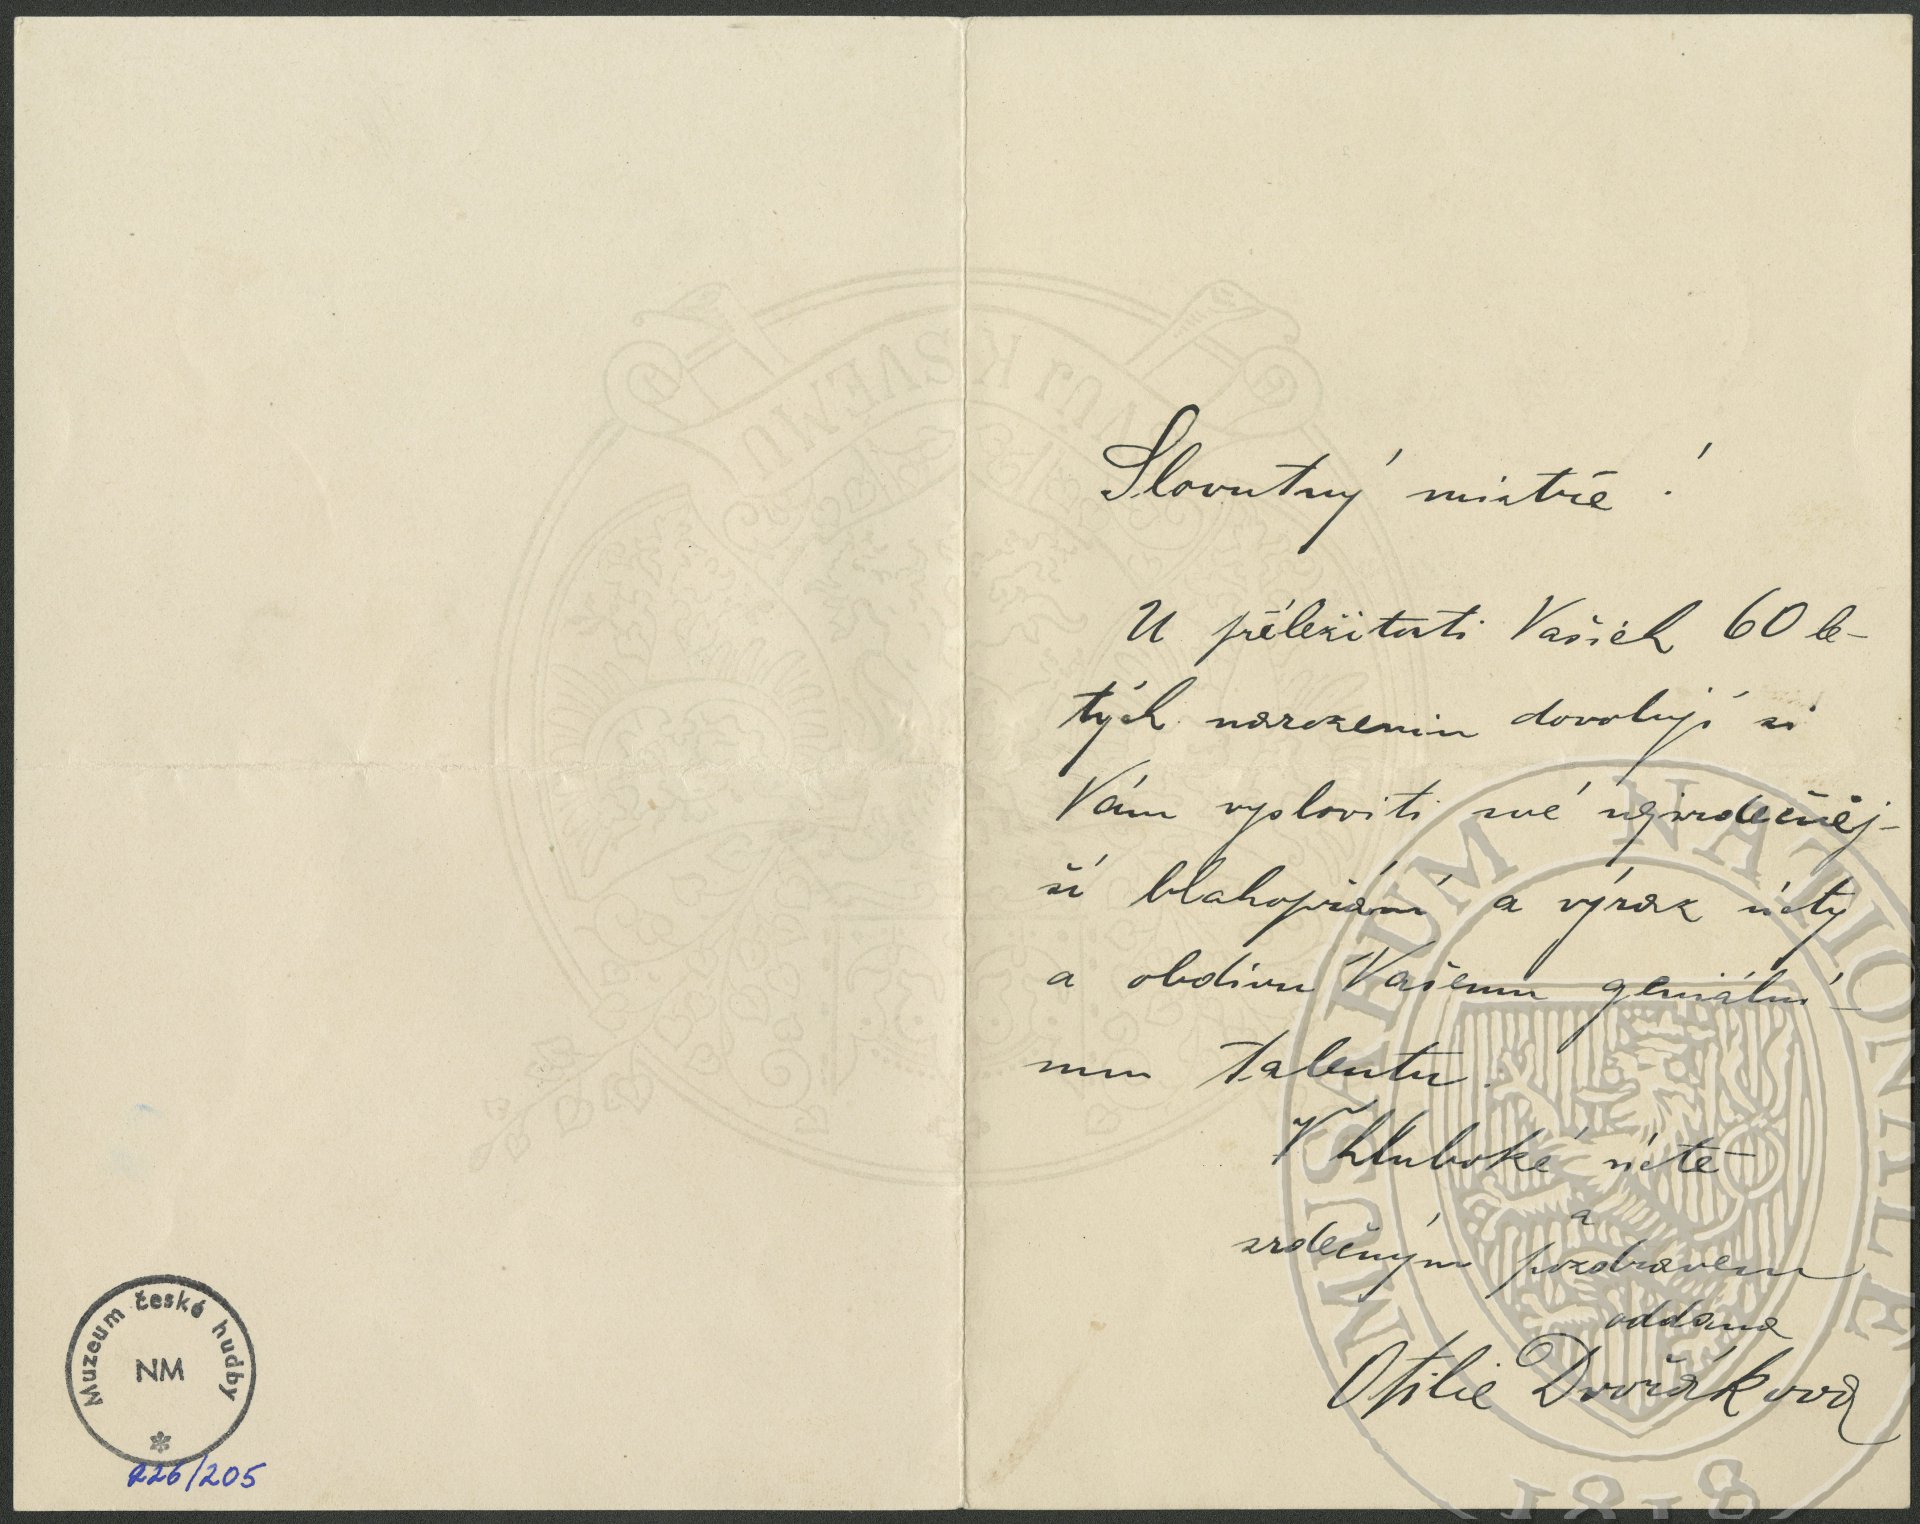 NUJ K SVÉMU
Slovutný mistře!
U příležitosti Vašich 60 le-
tých narozenin dovoluji si
Vám vysloviti své nejsrdečněj-
ší blahopřání a výraz úcty
a obdivu Vašemu geniální-
mu talentu.
V hluboké úctě
a
srdečným pozdravem
oddaná
Otilie Dvořáková
Muzeum české hudby
NM
226/205
MUSAEUM NATIONALE
1818